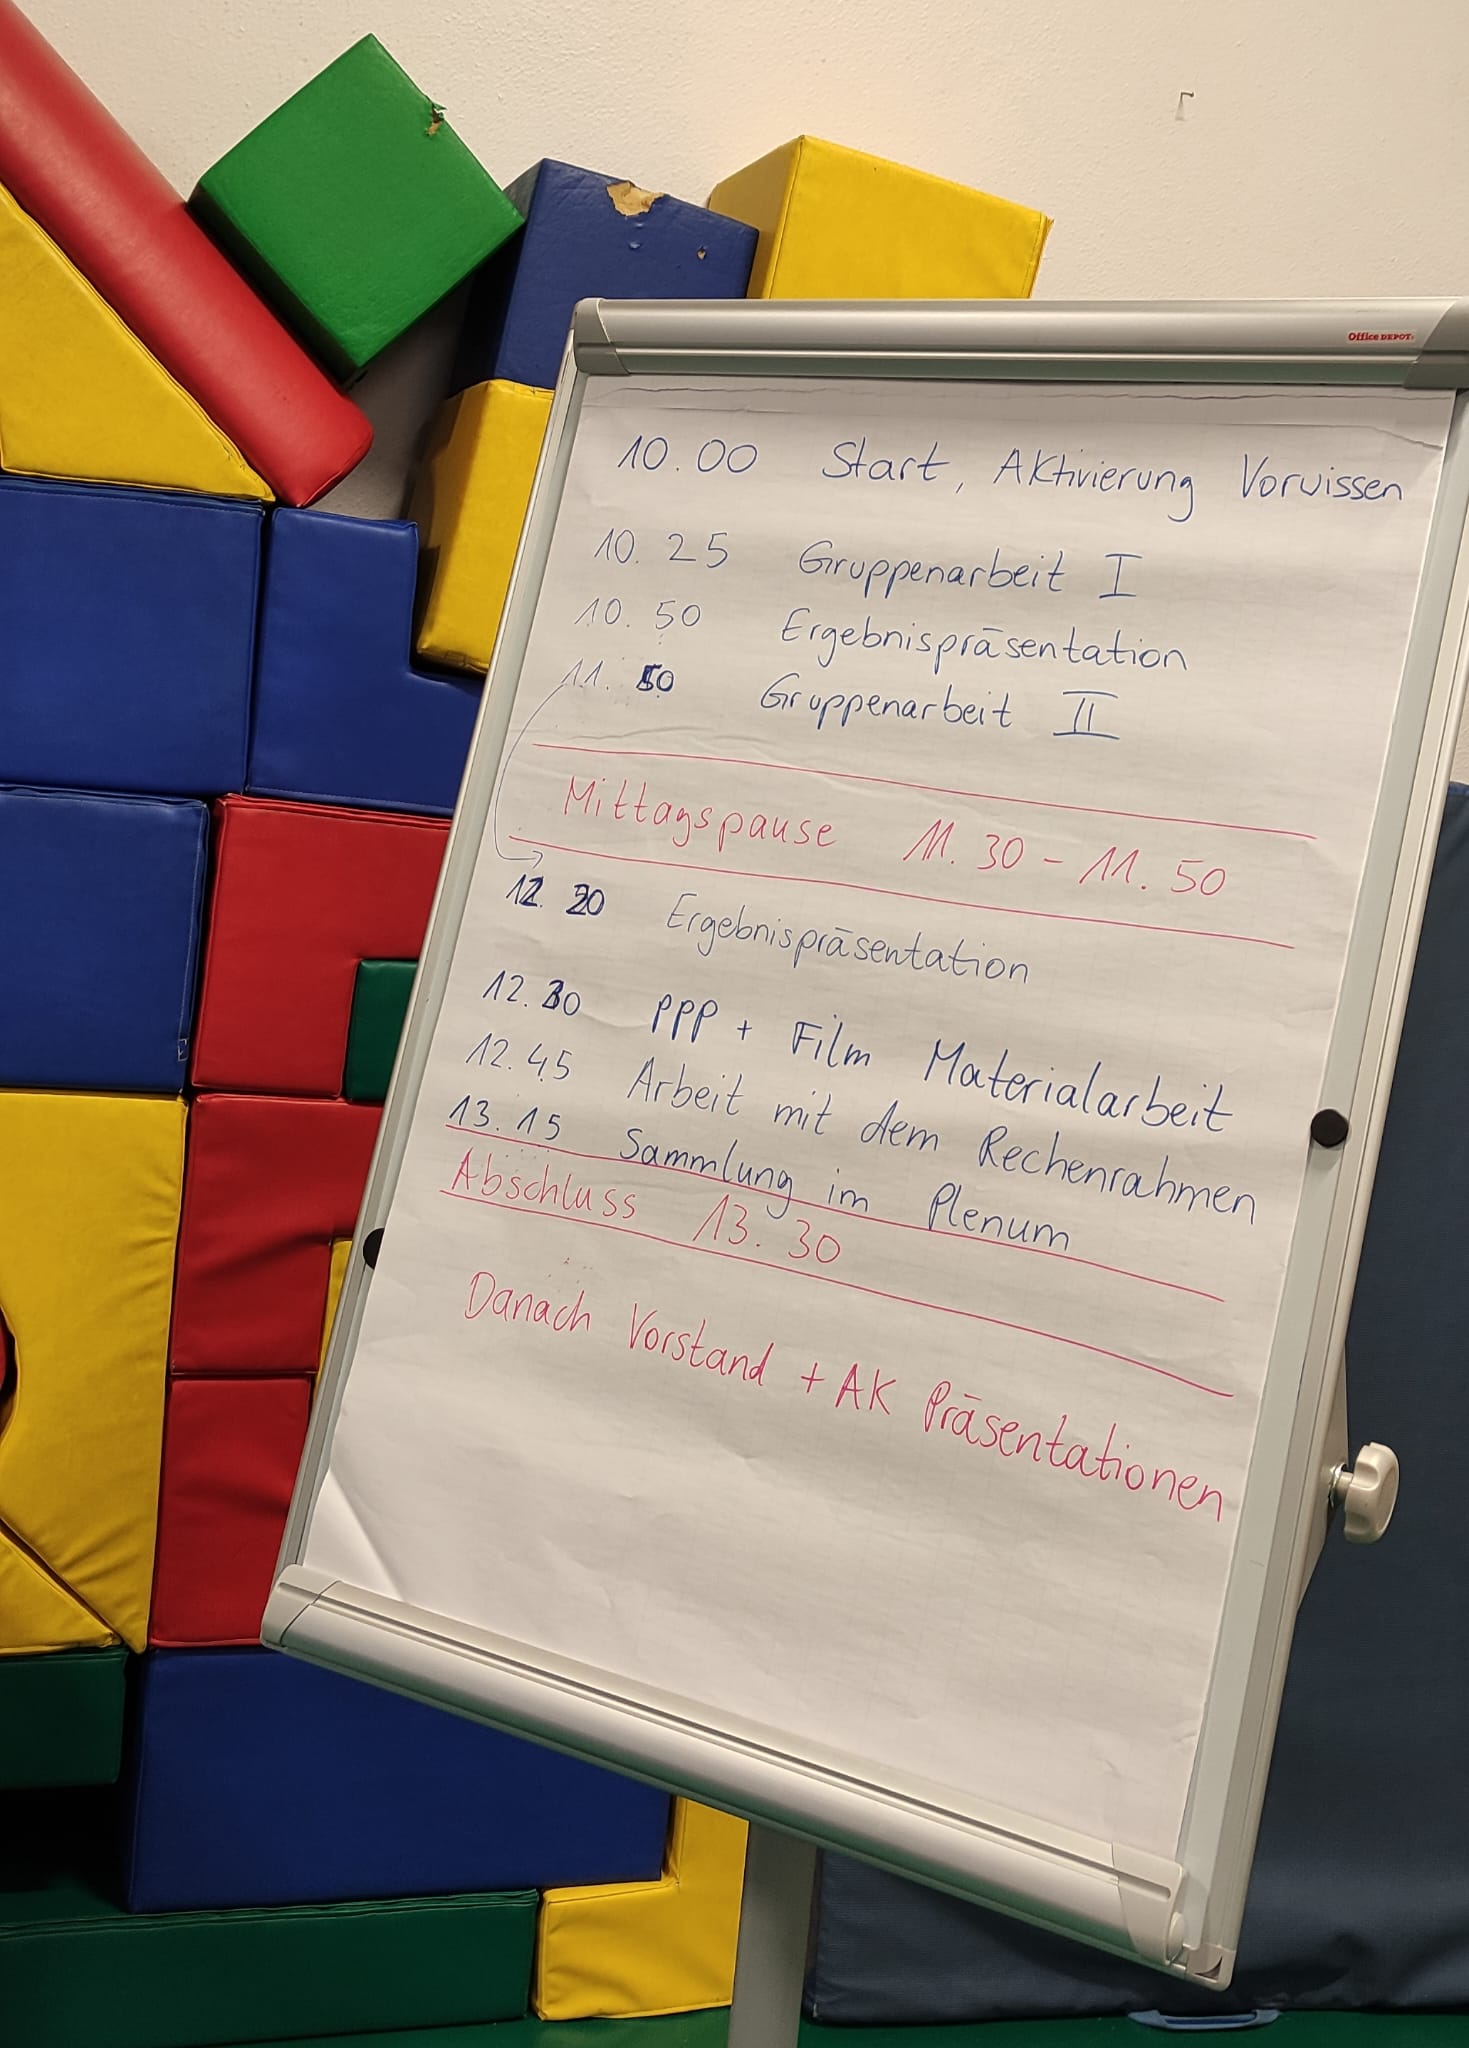 Office DEPOT
10.00 Start, Aktivierung Vorwissen
10.25 Gruppenarbeit I
10.50 Ergebnispräsentation
11.50 Gruppenarbeit II
Mittagspause 11.30 - 11.50
12.20 Ergebnispräsentation
12.30 PPP + Film Materialarbeit
12.45 Arbeit mit dem Rechenrahmen
13.15 Sammlung im Plenum
Abschluss 13.30
Danach Vorstand + AK Präsentationen